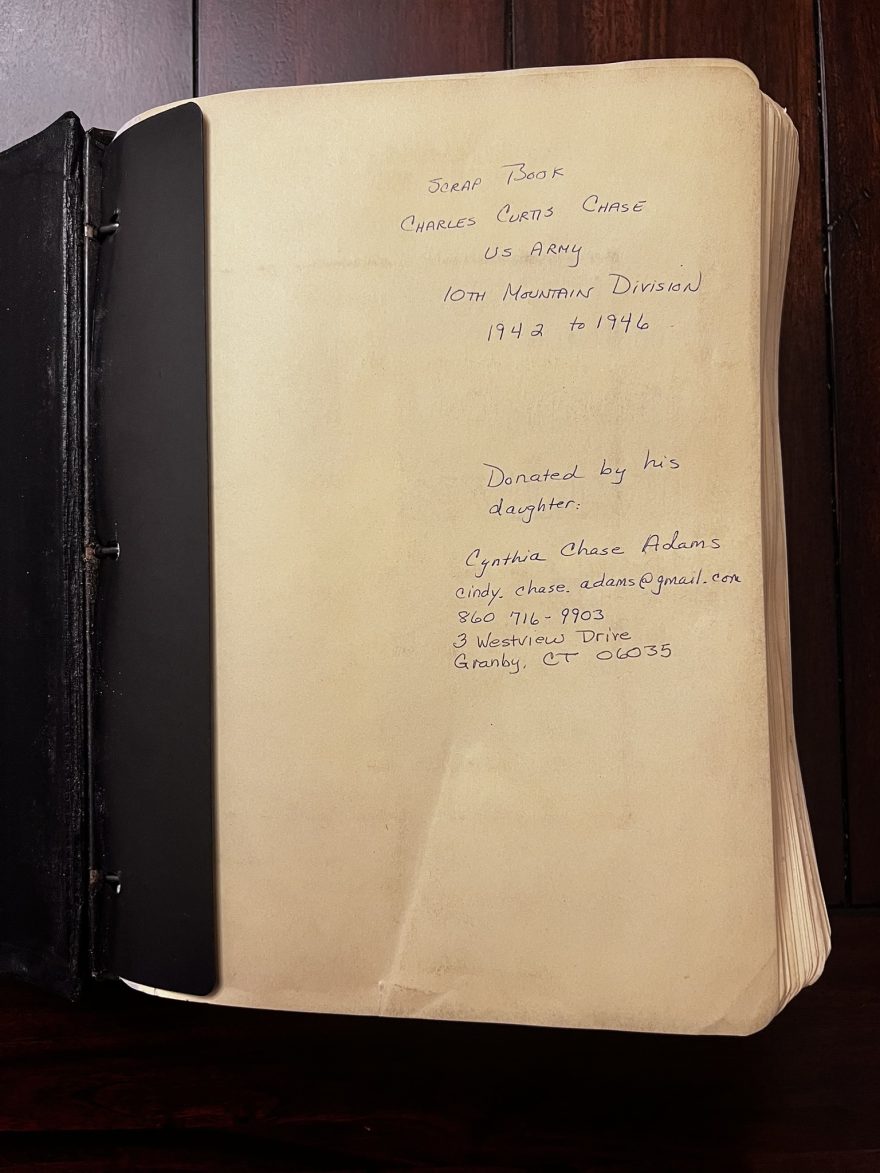 SCRAP BOOK
CHARLES CURTIS CHASE
US ARMY
10TH MOUNTAIN DIVISION
1942 to 1946
Donated by his
daughter:
Cynthia Chase Adams
cindy.chase.adams@gmail.com
860 716-9903
3 Westview Drive
Granby, CT 06035